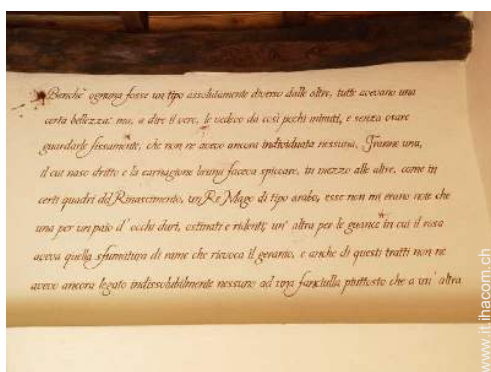 Benchè ognuna fosse un tipo assolutamente diverso dalle altre, tutte avevano una
certa bellezza: ma, a dire il vero, le vedevo da così pochi minuti, e senza osare
guardarle fissamente, che non ne avevo ancora individuata nessuna. Tranne una,
il cui naso dritto e la carnagione bruna faceva spiccare, in mezzo alle altre, come in
certi quadri del Rinascimento, un Re Mago di tipo arabo, esse non mi erano note che
una per un paio d' occhi duri, ostinati e ridenti; un' altra per le guance in cui il rosa
aveva quella sfumatura di rame che rievoca il geranio, e anche di questi tratti non ne
avevo ancora legato indissolubilmente nessuno ad una fanciulla piuttosto che a un' altra
www.it.ihacom.ch